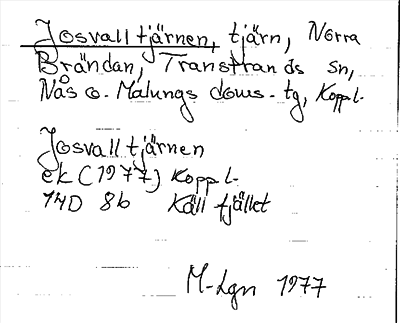 Josvalltjärnen, tjärn, Norra
Brändan, Transtrands sn,
Nås o. Malungs doms. tg, Koppl.
Josvalltjärnen
ek (1977) Koppl.
14D 8b Källfjället
M-Lgn 1977